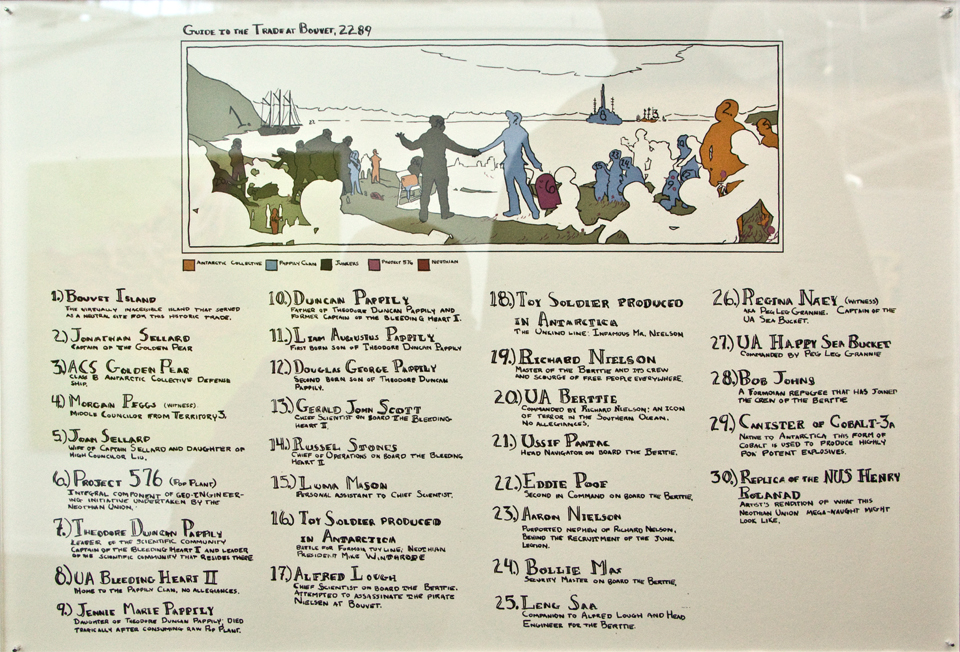 Guide to the Trade at Bouvet, 2289
1.
2
8
6
2
Antarctic Collective
Pappily Clan
Junkers
Project 576
Neothian
1.) Bouvet Island
The virtually inaccessible island that served
as a neutral site for this historic trade.
2.) Jonathan Sellard
Captain of the Golden Pear
3.) ACS Golden Pear
Class B Antarctic Collective Defense
Ship.
4.) Morgan Peggs (witness)
Middle Councilor from Territory 3.
5.) Joan Sellard
Wife of Captain Sellard and daughter of
High Councilor Liu.
6.) Project 576 (Fop Plant)
Integral component of geo-engineer-
ing initiative undertaken by the
Neothian Union.
7.) Theodore Duncan Pappily
Leader of the scientific community
Captain of the Bleeding Heart II and leader
of the scientific community that resides there
8.) UA Bleeding Heart II
Home to the Pappily Clan, no allegiances.
9.) Jennie Marie Pappily
Daughter of Theodore Duncan Pappily; died
tragically after consuming raw Fop Plant.
10.) Duncan Pappily
Father of Theodore Duncan Pappily and
former Captain of the Bleeding Heart I.
11.) Liam Augustus Pappily
First born son of Theodore Duncan Pappily
12.) Douglas George Pappily
Second born son of Theodore Duncan
Pappily.
13.) Gerald John Scott
Chief Scientist on board the Bleeding
Heart II.
14.) Russel Stones
Chief of Operations on board the Bleeding
Heart II
15.) Luma Mason
Personal assistant to Chief Scientist.
16.) Toy Soldier produced
in Antarctica
Battle for Formoia toy line: Neothian
President Mike Winthrope
17.) Alfred Lough
Chief Scientist on board the Berttie.
Attempted to assassinate the pirate
Nielsen at Bouvet.
18.) Toy Soldier produced
in Antarctica
The Unkind line: Infamous Mr. Nielson
19.) Richard Nielson
Master of the Berttie and its crew
and scourge of free people everywhere.
20.) UA Berttie
Commanded by Richard Nielson; an icon
of terror in the Southern Ocean.
No allegiances.
21.) Ussif Pantac
Head Navigator on board the Berttie.
22.) Eddie Poof
Second in Command on board the Berttie.
23.) Aaron Nielson
Purported nephew of Richard Nielson,
behind the recruitment of the June
Legion.
24.) Bollie Mas
Security Master on board the Berttie.
25. Leng Saa
Companion to Alfred Lough and Head
Engineer for the Berttie.
26.) Regina Naey (witness)
aka Peg Leg Grannie. Captain of the
UA Sea Bucket.
27.) UA Happy Sea Bucket
Commanded by Peg Leg Grannie
28.) Bob Johns
A Formoian refugee that has joined
the crew of the Berttie
29.) Canister of Cobalt-3a
Native to Antarctica this form of
cobalt is used to produce highly
potent explosives.
30.) Replica of the NUS Henry
Roland
Artist's rendition of what this
Neothian Union mega-naught might
look like.